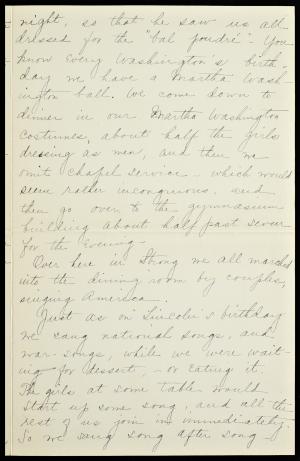 night, so that he saw us all
dressed for the "bal poudré". You
know every Washington's birth-
day we have a Martha Wash-
ington ball. We come down to
dinner in our Martha Washington
costumes, about half the girls
dressing as men, and then we
omit Chapel service - which would
seem rather incongruous. and
then go over to the gymnasium
building about half past seven
for the evening.
Over here in Strong we all marched
into the dining room by couples,
singing America.
Just as on Lincoln's birthday
we sang national songs, and
war songs, while we were wait-
ing for dessert, - or eating it.
The girls at some table would
start up some song, and all the
rest of us join in immediately.
So we sang song after song -